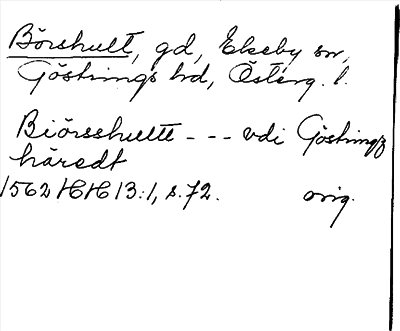 Börshult, gd, Ekeby sn,
Göstrings hd, Österg. l.
Biörsshultt - - - vdi Göstringz
häredt
1562 HH 13:1, s. 72. orig.